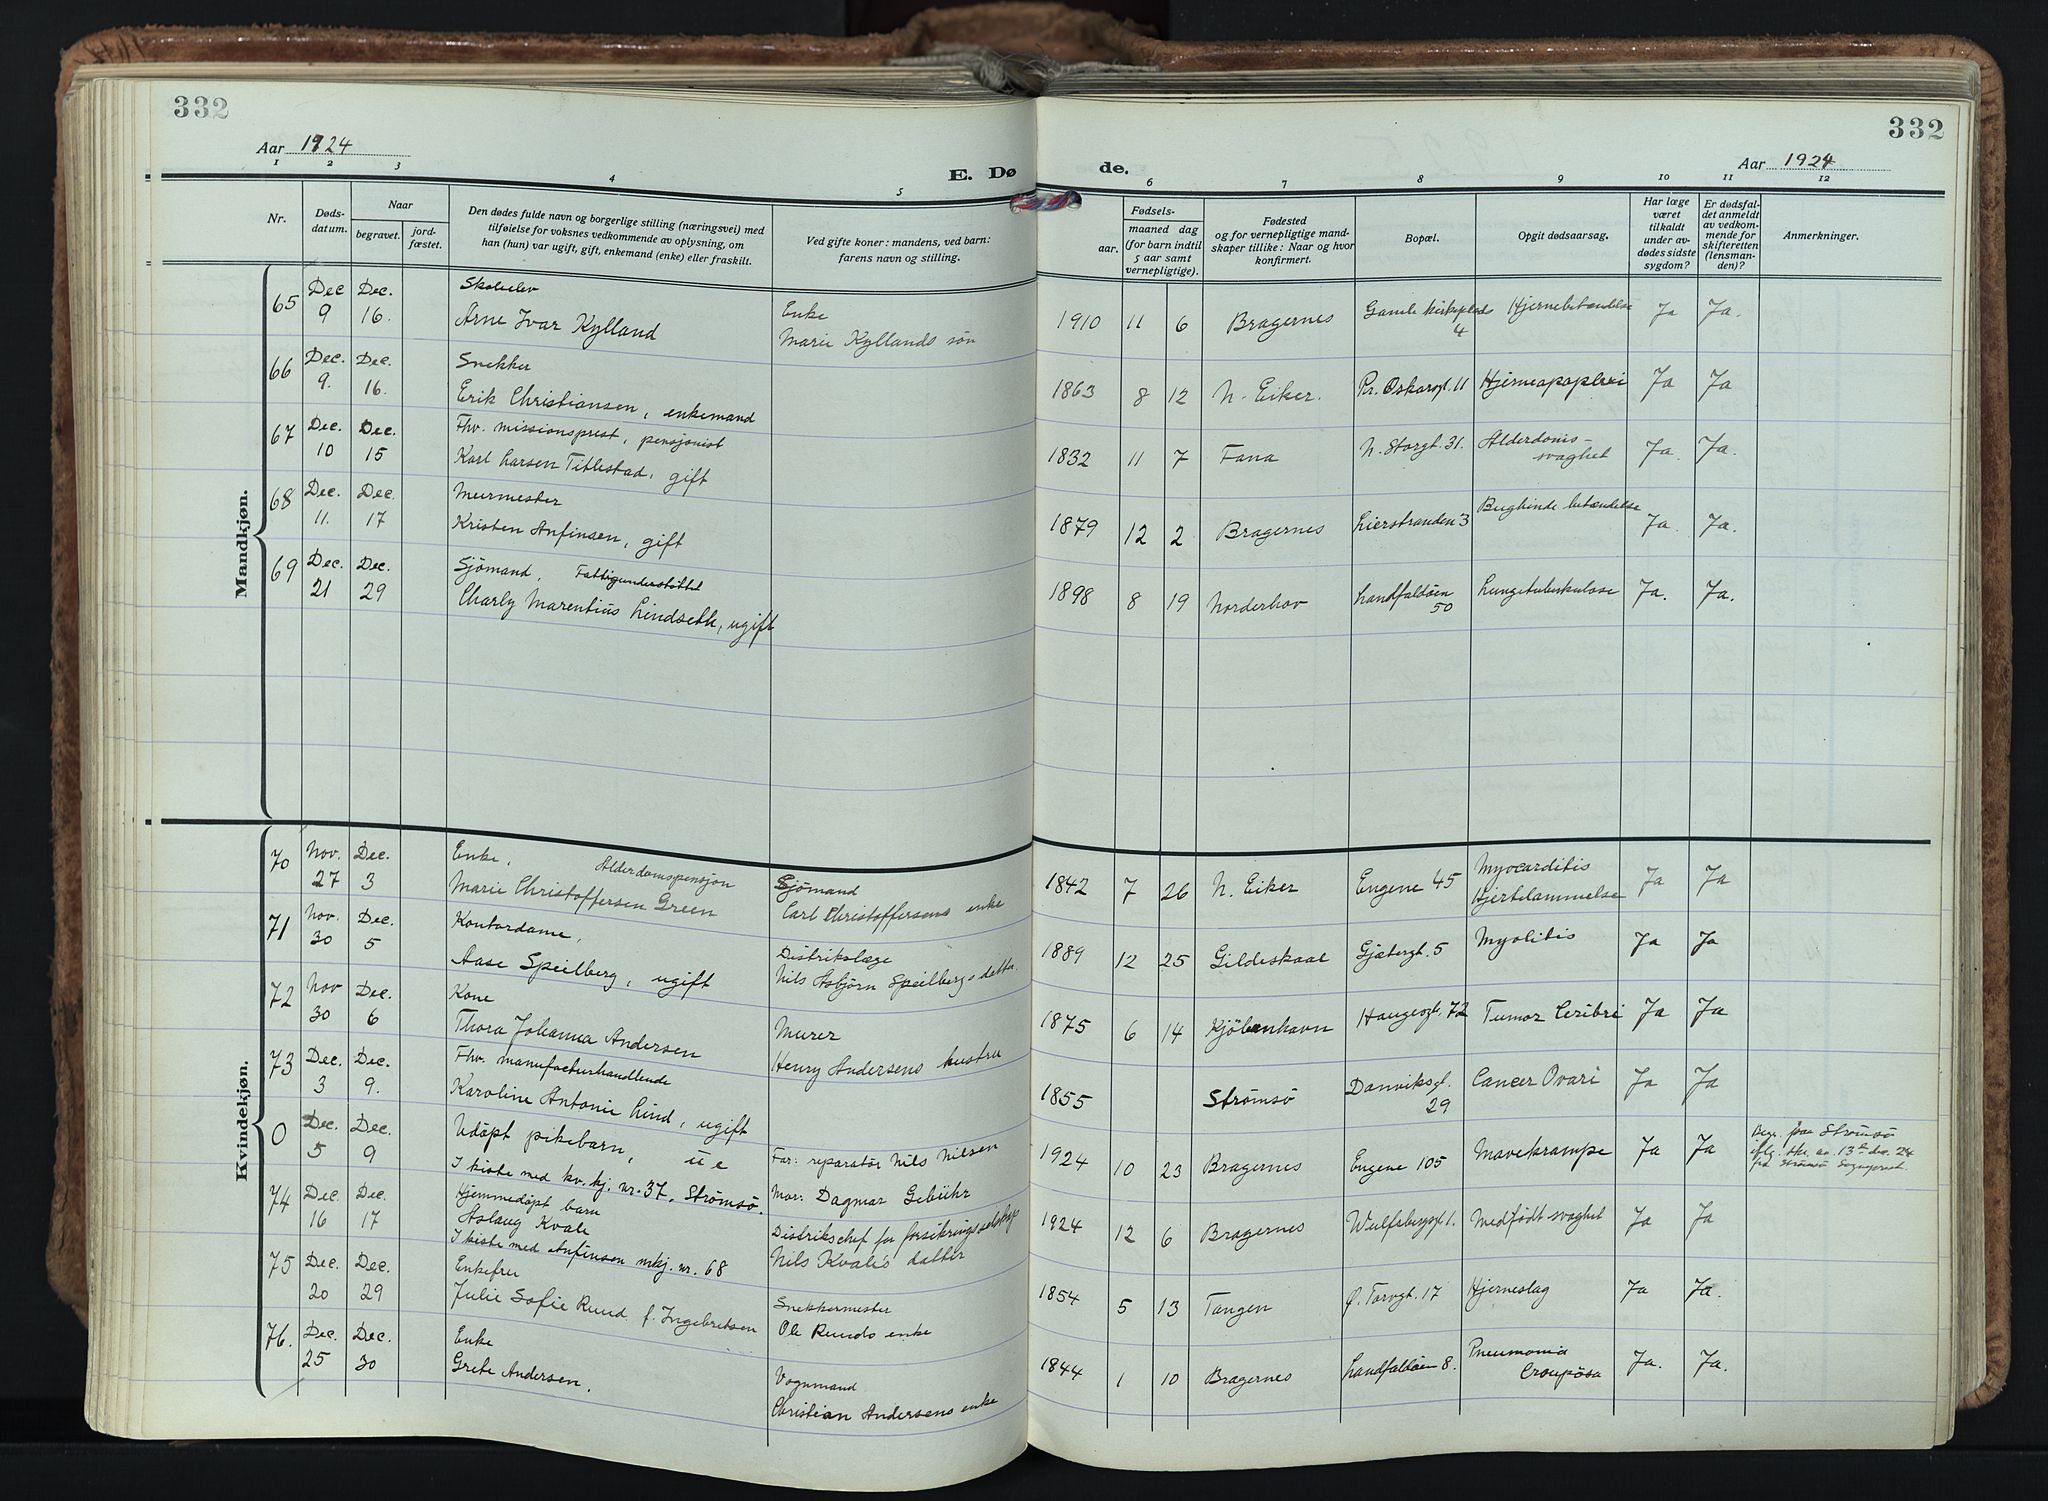 332
332
Aar 1924
E. Dø
de.
Aar 1924
1 2 3 4 5 6 7 8 9 10 11 12
Nr.
Døds-
datum.
Naar
begravet.
jord-
fæstet.
Den dødes fulde navn og borgerlige stilling (næringsvei) med
tilføielse for voksnes vedkommende av oplysning, om
han (hun) var ugift, gift, enkemand (enke) eller fraskilt.
Ved gifte koner: mandens, ved barn:
farens navn og stilling.
Fødsels-
aar.
maaned dag
(for barn indtil
5 aar samt
vernepligtige).
Fødested
og for vernepligtige mand-
skaper tillike: Naar og hvor
konfirmert.
Bopæl.
Opgit dødsaarsag.
Har læge
været
tilkaldt
under av-
dødes sidste
sygdom?
Er dødsfal-
det anmeldt
av vedkom-
mende for
skifteretten
(lensman-
den)?
Anmerkninger.
Mandkjøn.
65 Dec 9 Dec. 16. Skoleelev
Arne Ivar Kylland
Enke
Marie Kyllands søn
1910 11 6 Bragernes Gamle kirkeplads 4 Hjernebetændelse Ja Ja.
66 Dec. 9. Dec. 16. Snekker
Erik Christiansen, enkemand
1863 8 12 N. Eiker. Pr. Oskarsgt. 11 Hjerneapoplexi Ja Ja
67 Dec. 10 Dec. 15 Fhv. missionsprest, pensjonist
Karl Larsen Titlestad, gift
1832 11 7 Fana N. Storgt. 31. Alderdoms-
svaghet Ja. Ja.
68 Dec. 11. Dec. 17 Murmester
Kristen Anfinsen, gift
1879 12 2 Bragernes Lierstranden 3 Bughinde betændelse Ja. Ja.
69 Dec. 21 Dec. 29 Sjömand, Fattigunderstöttet
Charly Marentius Lindseth, ugift
1898 8 19 Norderhov Landfaldöen 50 Lungetuberkulose Ja. Ja.
Kvindekjøn.
70 Nov. 27 Dec. 3 Enke, Alderdomspensjon
Marie Christoffersen Green
Sjömand
Carl Christoffersens enke
1842 7 26 N. Eiker Engene 45 Myocarditis
Hjertelammelse Ja Ja
71 Nov. 30 Dec. 5 Kontordame,
Aase Speilberg, ugift
Distrikslæge
Nils Asbjörn Speilbergs datter
1889 12 25 Gildeskaal Gjætergt. 5 Myolitis Ja Ja
72 Nov 30 Dec. 6 Kone
Thora Johanna Andersen
Murer
Henry Andersens hustru
1875 6 14 Kjöbenhavn Haugesgt. 72 Tumor Ceribri Ja Ja
73 Dec. 3 Dec. 9. Fhv. manufacturhandlende
Karoline Antonie Lind, ugift
1855 Strømsö Danviksgt. 29 Cancer Ovari Ja Ja
0 Dec. 5 Dec. 9 Udöpt pikebarn, u e
I kiste med kv.kj. nr. 37. Strømsö.
Far: reparatör Nils Nilsen
Mor: Dagmar Gebühr
1924 10 23 Bragernes Engene 105 Mavekrampe Ja Ja
Begr. paa Strömsö
iflg. skr. av 13de dec. 24
fra Strömsö sogneprest.
74 Dec. 16 Dec. 17 Hjemmedöpt barn
Aslaug Kvale
I kiste med Anfinsen mkj. nr. 68
Distrikschef for forsikringsselskap
Nils Kvales datter
1924 12 6 Bragernes Wulfsbergsgt. 1. Medfödt svaghet Ja Ja
75 Dec. 20 Dec. 29 Enkefru
Julie Sofie Ruud f. Ingebretsen
Snekkermester
Ole Ruuds enke
1854 5 13 Tangen Ø. Torvgt. 17 Hjerneslag Ja Ja.
76. Dec. 25 Dec. 30 Enke
Grete Andersen.
Vognmand
Christian Andersens enke
1844 1 10 Bragernes Landfaldöen 8. Pneumonia
Croupösa Ja. Ja.